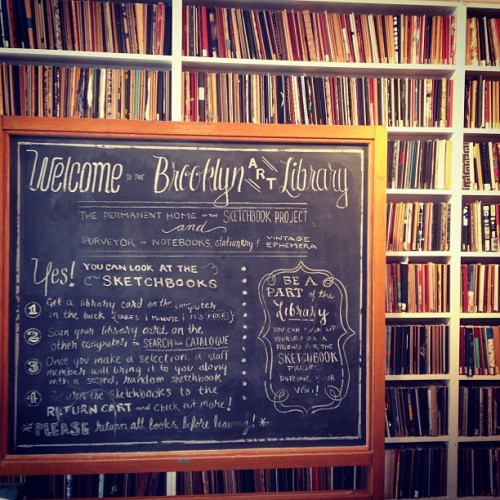 Welcome to the Brooklyn ART Library
THE PERMANENT HOME of the SKETCHBOOK PROJECT
and
PURVEYOR of NOTEBOOKS, stationery & VINTAGE EPHEMERA
Yes! YOU CAN LOOK AT THE
SKETCHBOOKS
1 Get a library card on the computer
in the back (TAKES 1 MINUTE! IT'S FREE!)
2 Scan your library card on the
other computer to SEARCH the CATALOGUE
3 Once you make a selection, a staff
member will bring it to you along
with a second, random sketchbook
4 Return the sketchbooks to the
RETURN CART and check out more!
*PLEASE return all books before leaving! *
BE A
PART of the
Library
YOU CAN SIGN UP
YOURSELF OR A
FRIEND FOR THE
SKETCHBOOK
PROJECT
DURING YOUR
VISIT!